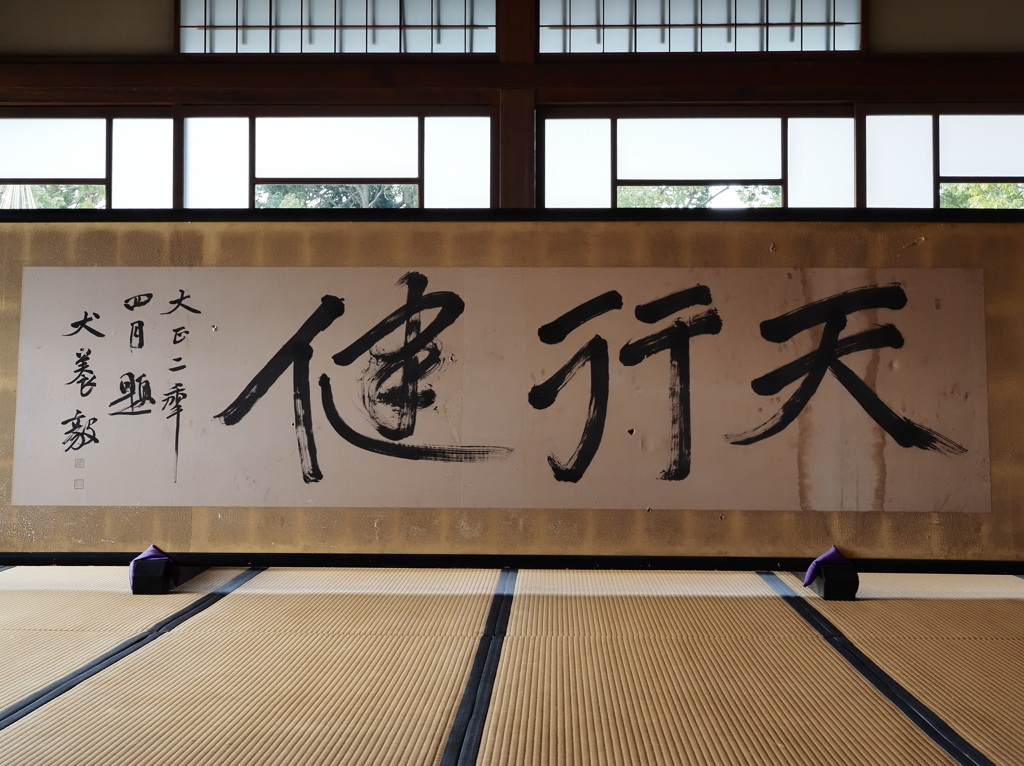 天行健
大正二季
四月題
犬養毅